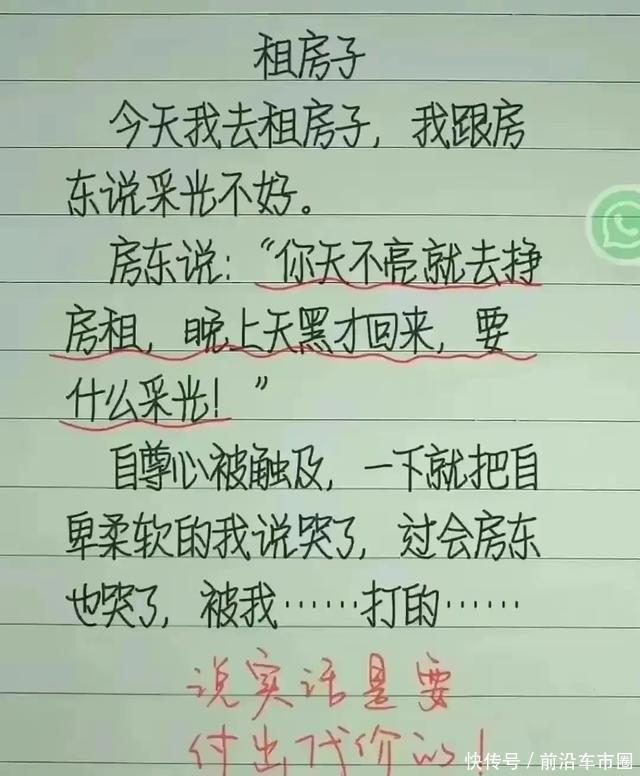 租房子
今天我去租房子，我跟房
东说采光不好。
房东说：“你天不亮就去挣
房租，晚上天黑才回来，要
什么采光！”
自尊心被触及，一下就把自
卑柔软的我说哭了，过会房东
也哭了，被我……打的……
说实话是要
付出代价的！
快传号／前沿车市圈